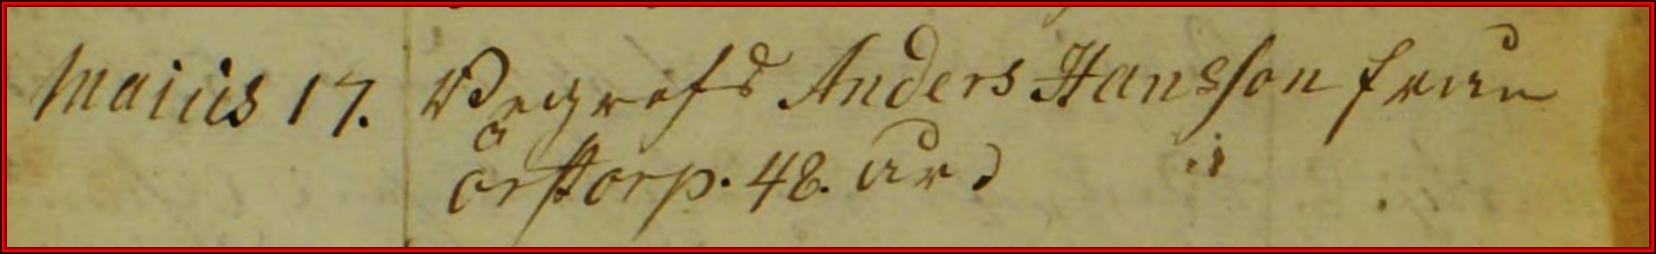 Maius 17. Begrofs Anders Hansson från
örstorp. 48. år